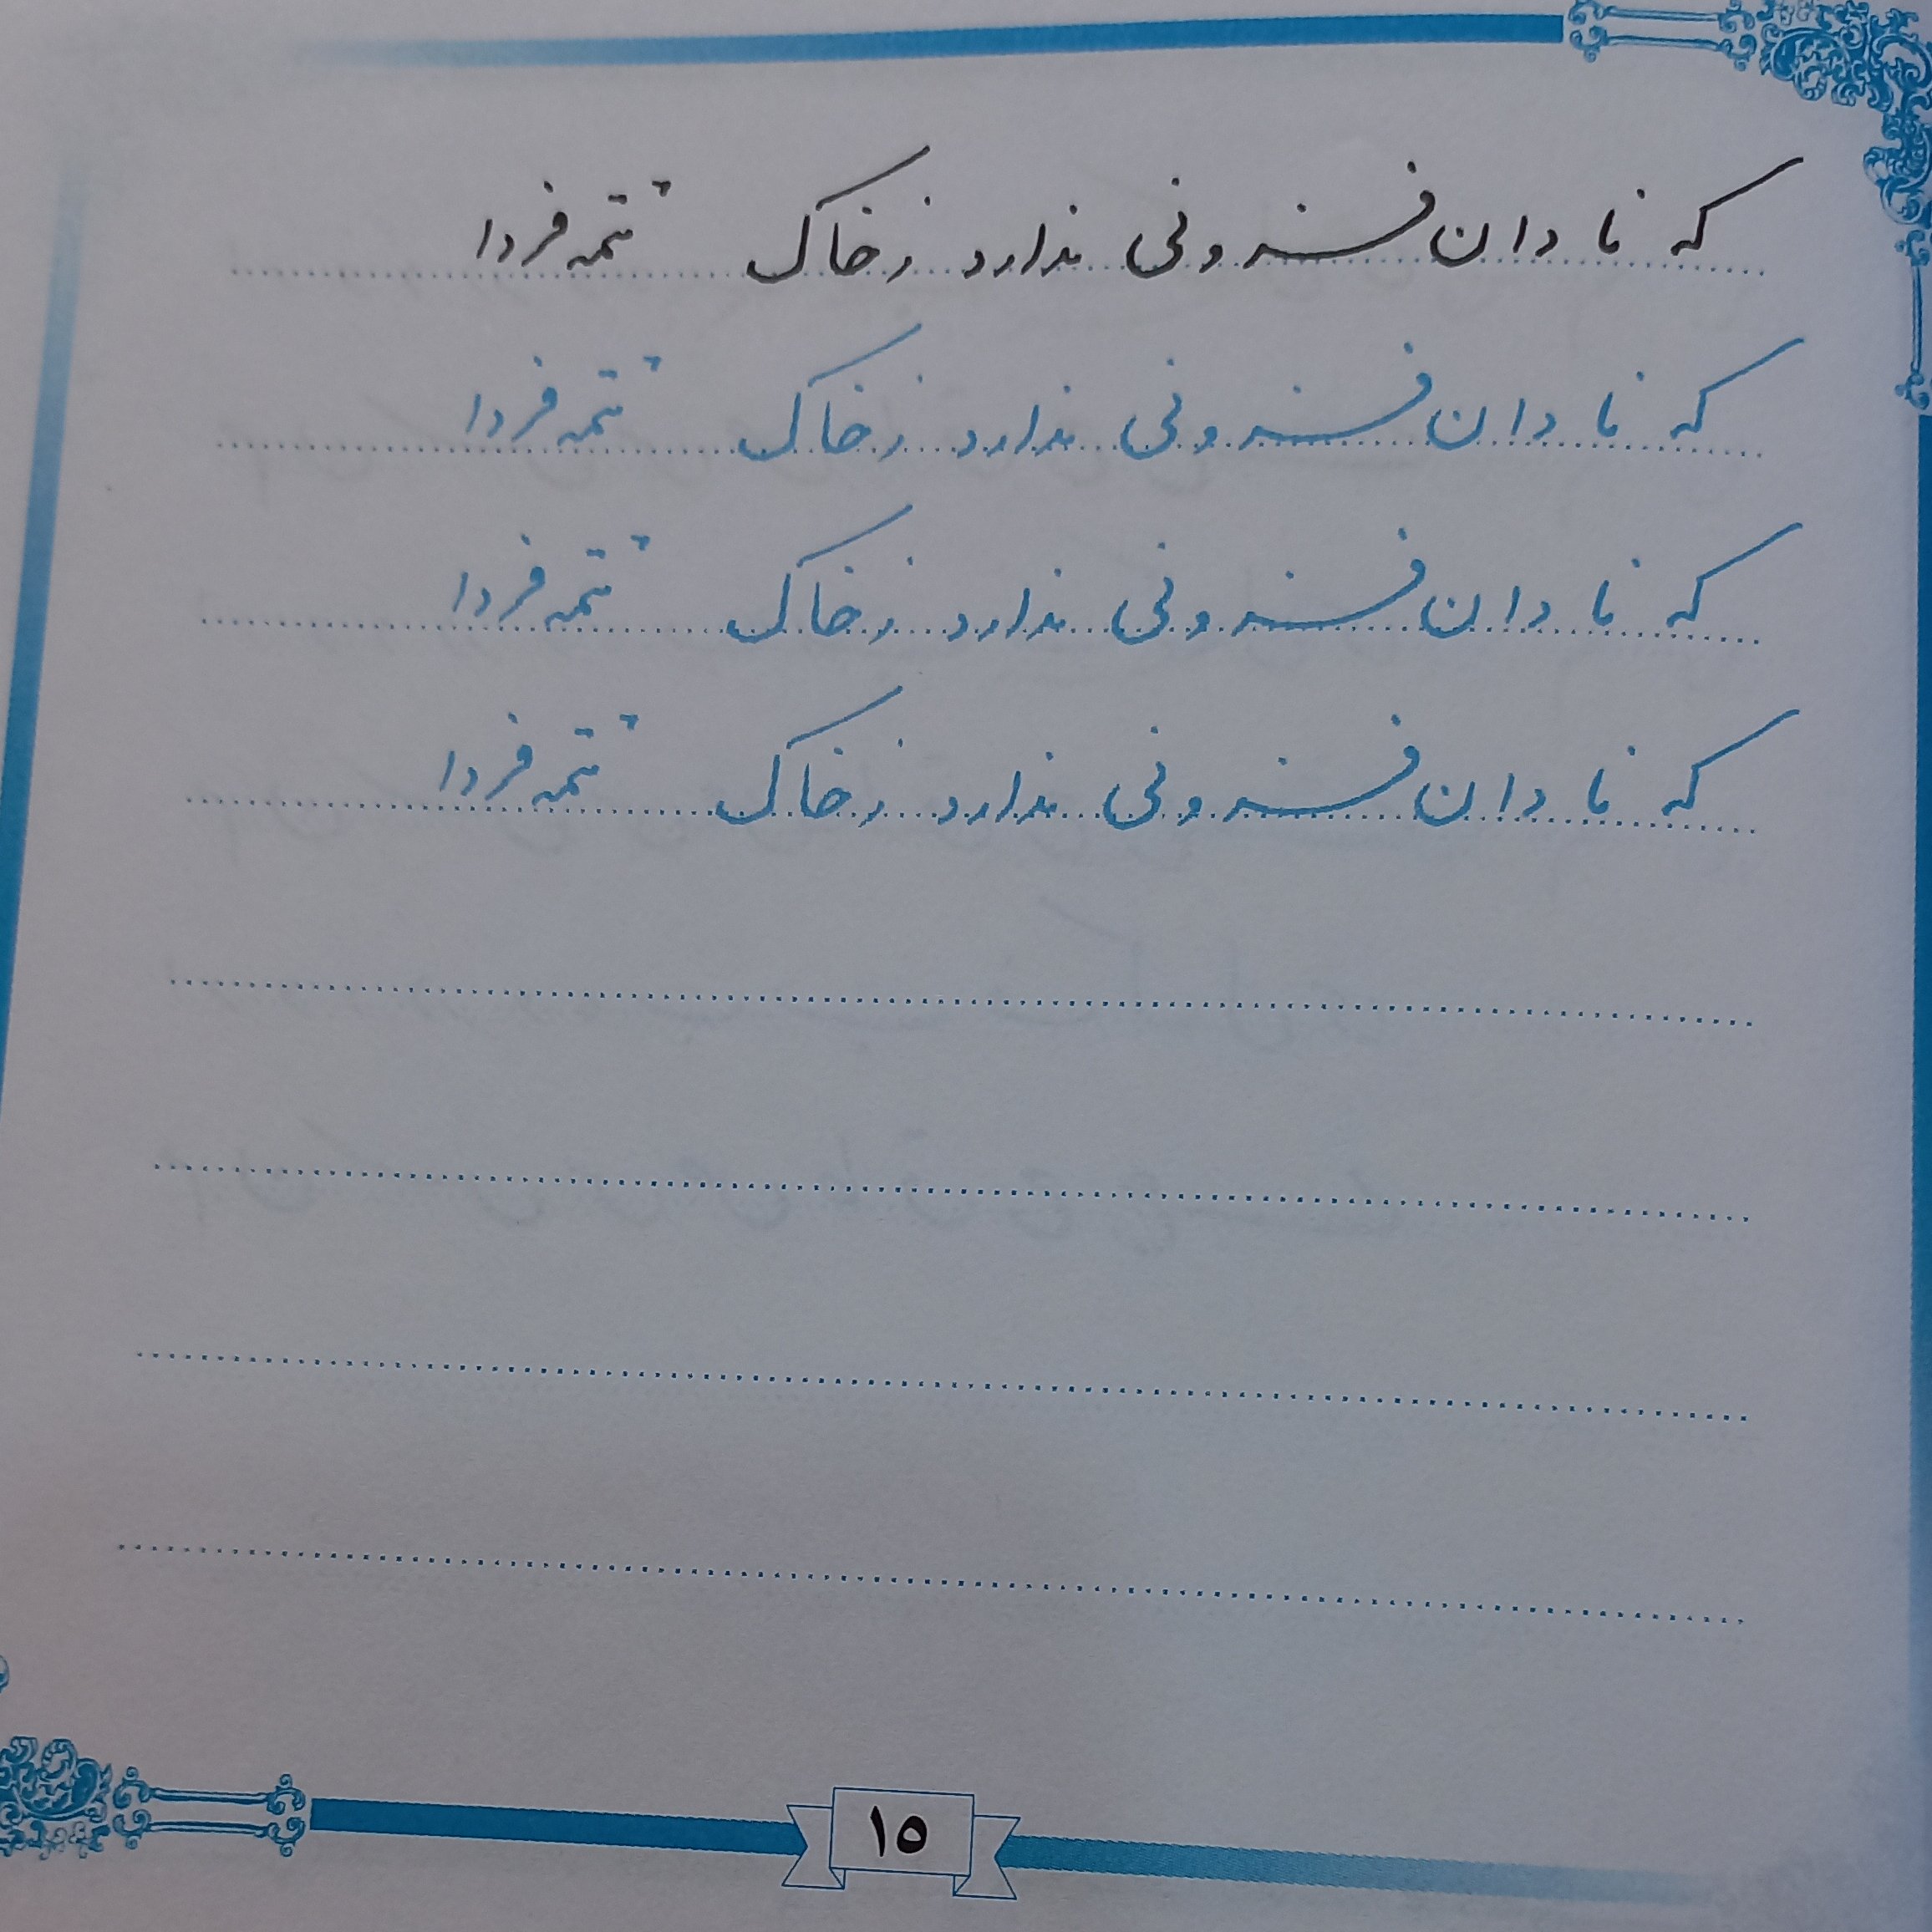 که نادان فزونی ندارد ز خاک تتمه فردا
که نادان فزونی ندارد ز خاک تتمه فردا
که نادان فزونی ندارد ز خاک تتمه فردا
که نادان فزونی ندارد ز خاک تتمه فردا
۱۵